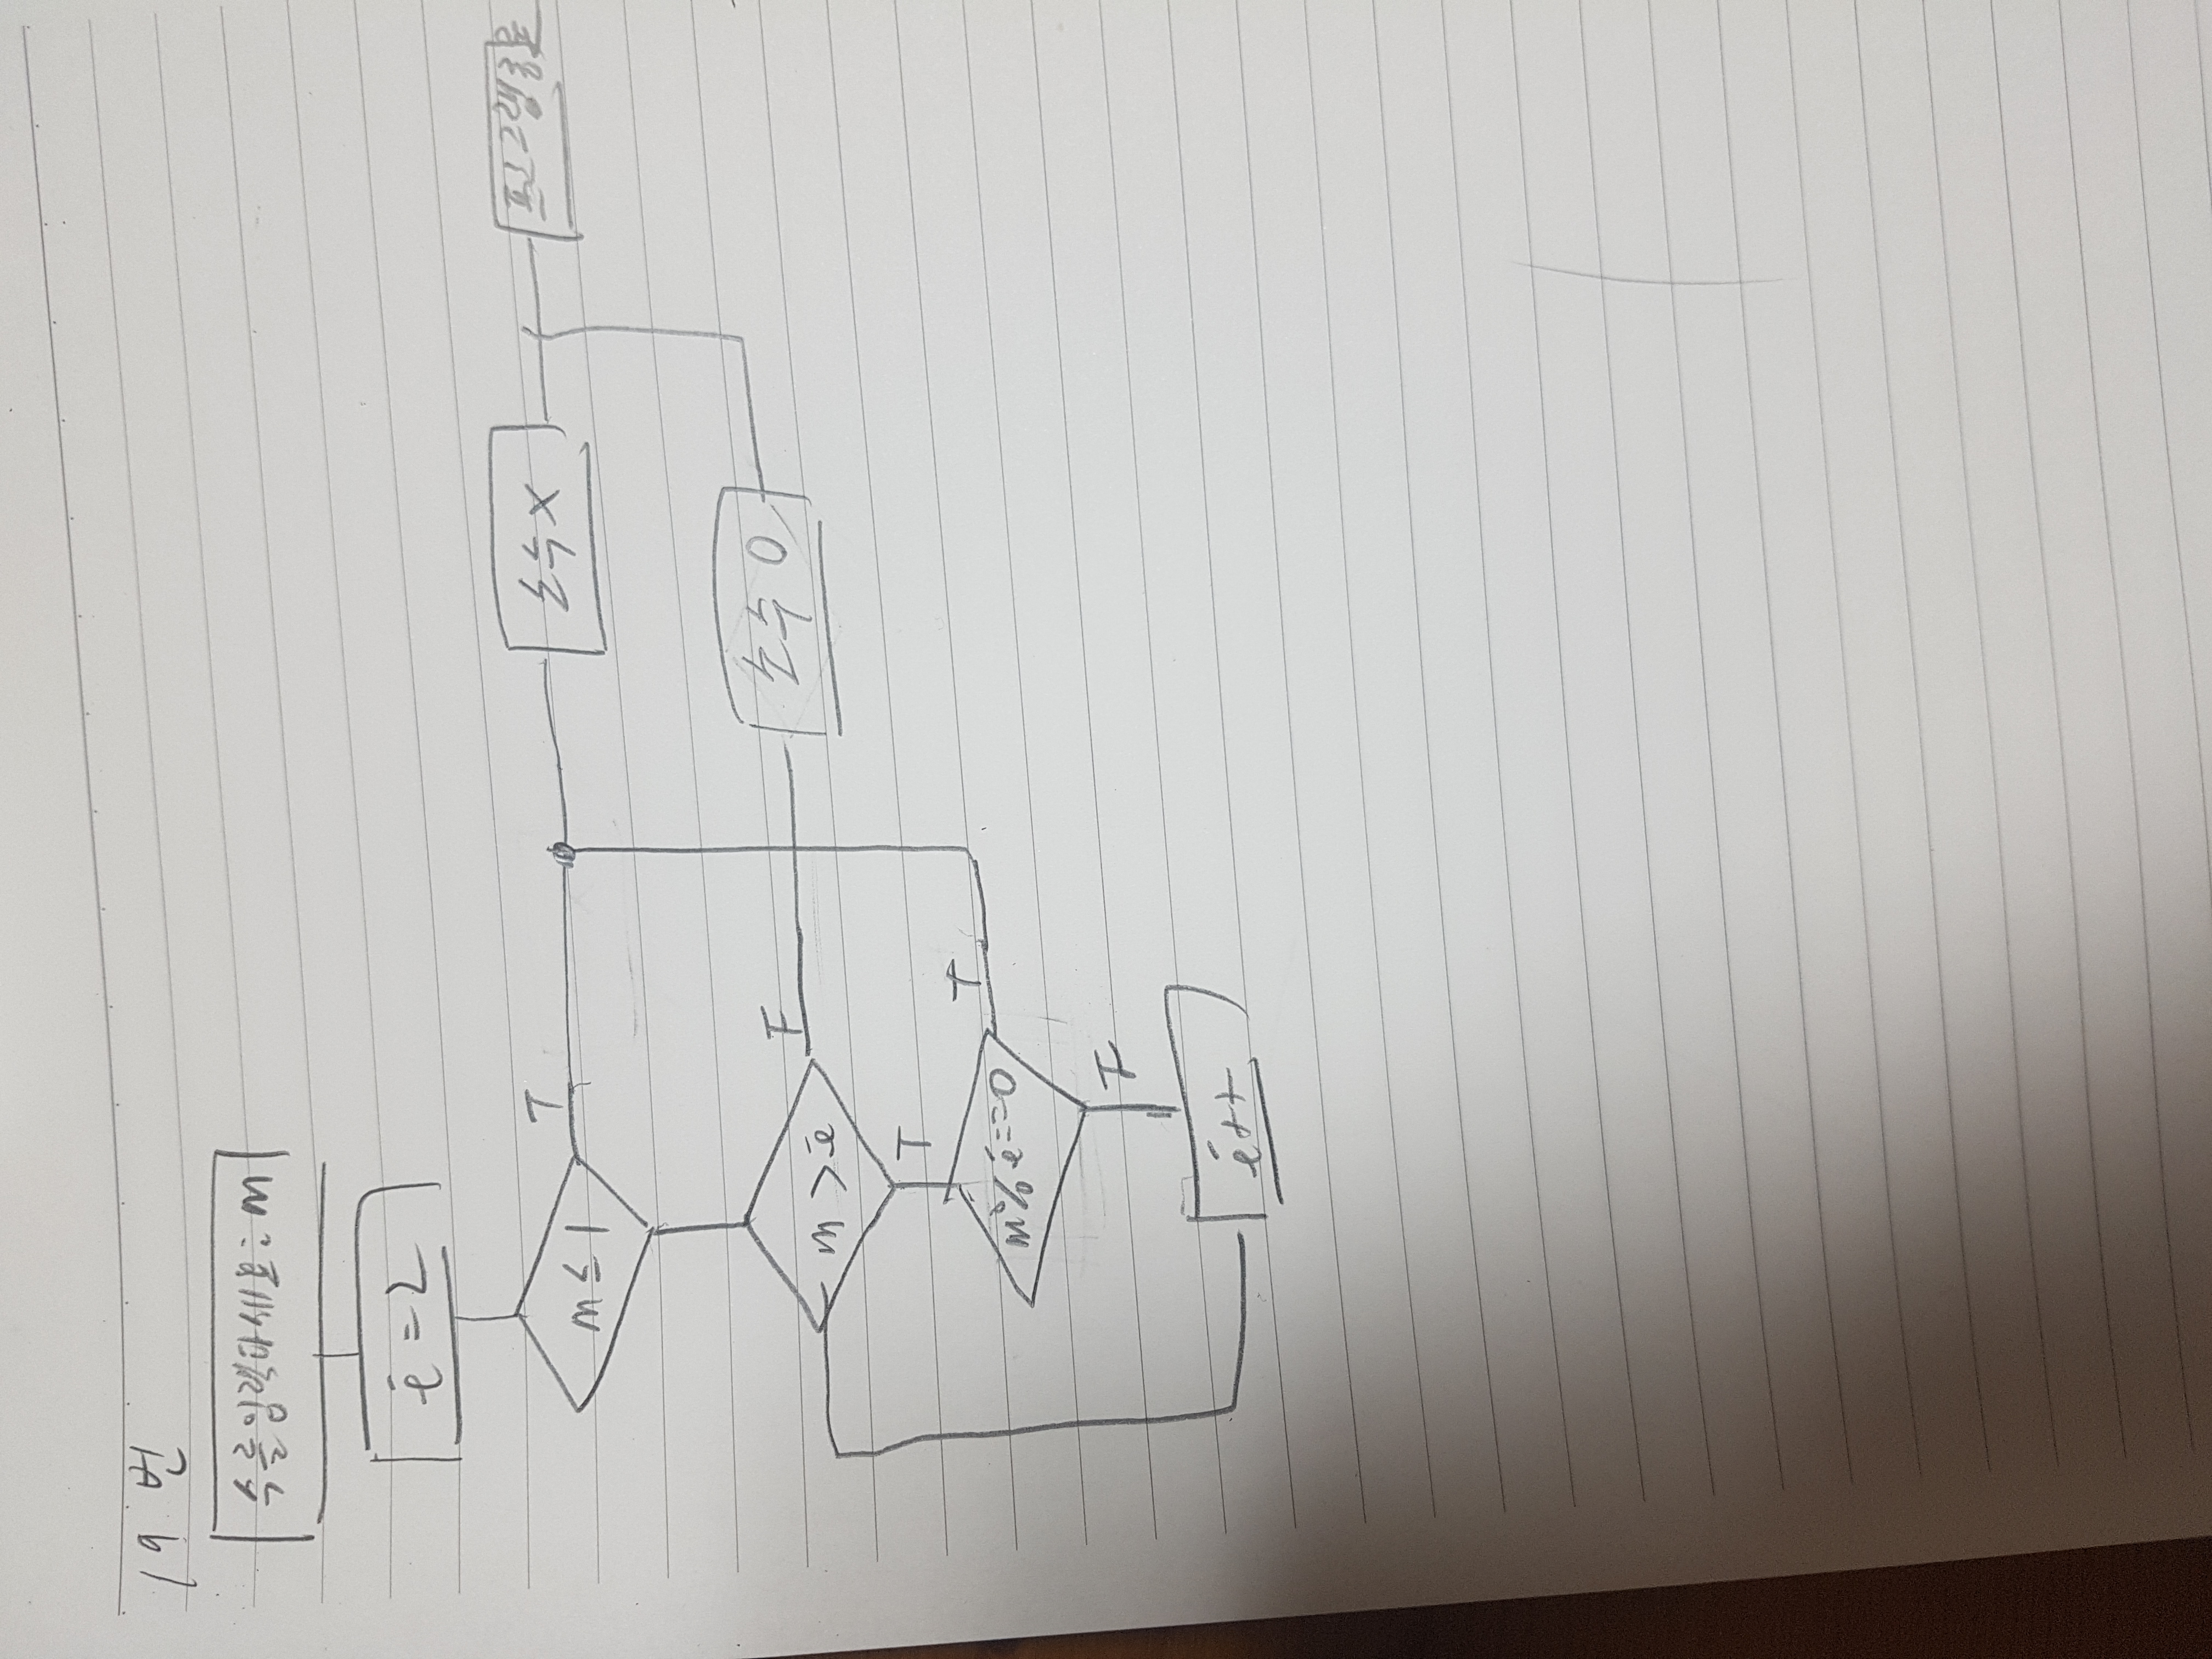 19 번
수를 입력하세요: m
i = 2
m ≤ 1
T
소수 X
프로그램 종료
m > i
F
소수 O
T
m % i == 0
T
F
i++